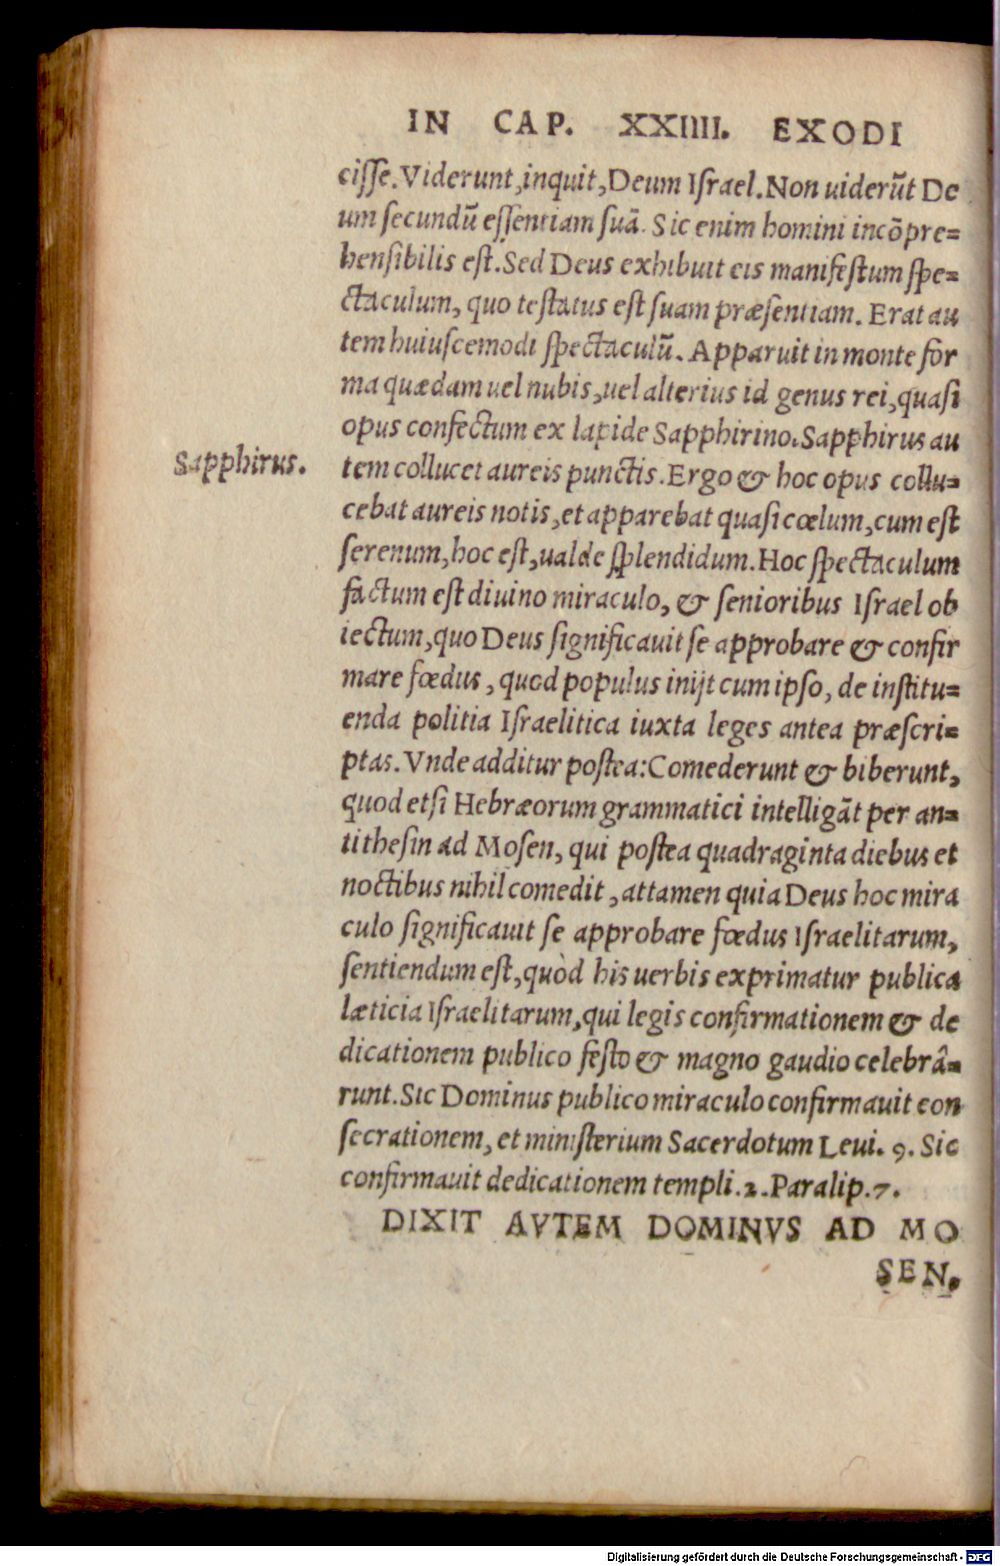 IN CAP. XXIIII. EXODI
ciſſe. Viderunt, inquit, Deum Iſrael. Non uiderūt De
um ſecundū eſſentiam ſuā. Sic enim homini incōpre=
henſibilis eſt. Sed Deus exhibuit eis manifeſtum ſpe=
ctaculum, quo teſtatus eſt ſuam præſentiam. Erat au
tem huiuſcemodi ſpectaculū. Apparuit in monte for
ma quædam uel nubis, uel alterius id genus rei, quaſi
opus confectum ex lapide Sapphirino. Sapphirus au
Sapphirus.
tem collucet aureis punctis. Ergo & hoc opus collu=
cebat aureis notis, et apparebat quaſi cœlum, cum eſt
ſerenum, hoc eſt, ualde ſplendidum. Hoc ſpectaculum
factum eſt diuino miraculo, & ſenioribus Iſrael ob
iectum, quo Deus ſignificauit ſe approbare & confir
mare fœdus, quod populus inijt cum ipſo, de inſtitu=
enda politia Iſraelitica iuxta leges antea præſcri=
ptas. Vnde additur poſtea: Comederunt & biberunt,
quod etſi Hebræorum grammatici intelligāt per an=
titheſin ad Moſen, qui poſtea quadraginta diebus et
noctibus nihil comedit, attamen quia Deus hoc mira
culo ſignificauit ſe approbare fœdus Iſraelitarum,
ſentiendum eſt, quòd his uerbis exprimatur publica
læticia Iſraelitarum, qui legis confirmationem & de
dicationem publico feſto & magno gaudio celebrâ=
runt. Sic Dominus publico miraculo confirmauit con
ſecrationem, et miniſterium Sacerdotum Leui. 9. Sic
confirmauit dedicationem templi. 2. Paralip. 7.
DIXIT AVTEM DOMINVS AD MO
SEN.
Digitalisierung gefördert durch die Deutsche Forschungsgemeinschaft - DFG